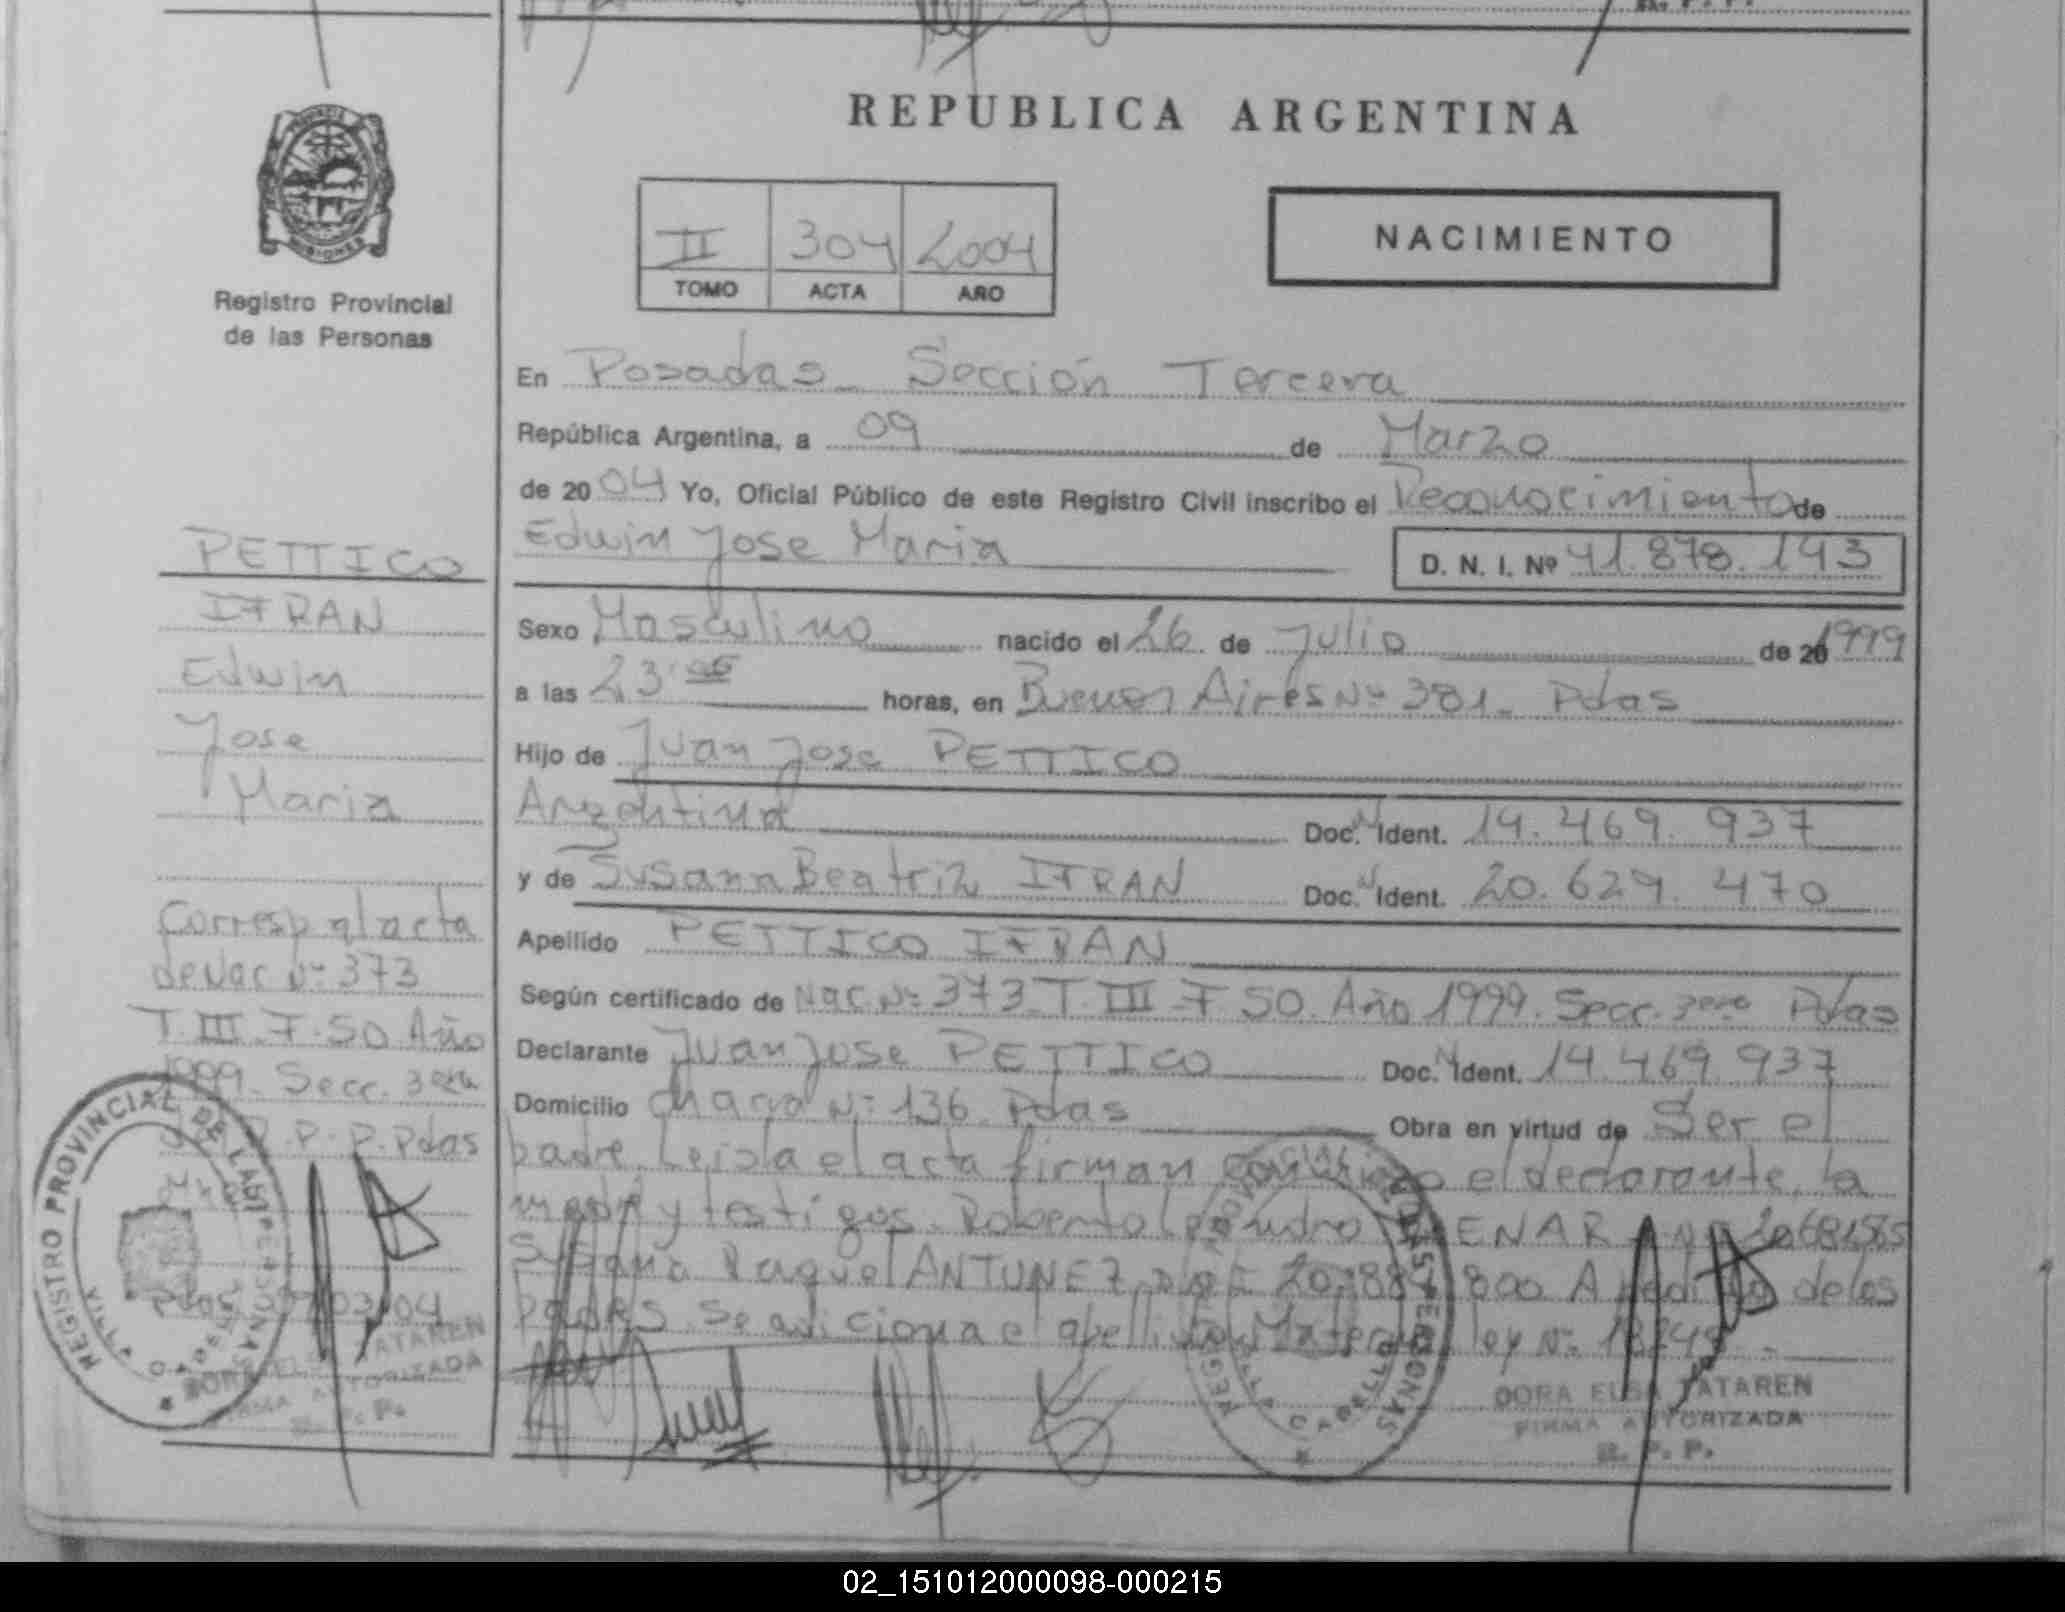 REPUBLICA ARGENTINA
Registro Provincial
de las Personas
II 304 2004
TOMO ACTA AÑO
NACIMIENTO
En Posadas - Sección Tercera
República Argentina, a 09 de Marzo
de 2004 Yo, Oficial Público de este Registro Civil inscribo el Reconocimiento de
Edwin Jose Maria D. N. I. Nº 41.878.143
Sexo Masculino nacido el 26 de Julio de 20 1999
a las 23 horas, en Buenos Aires Nº 381 - Pdas
Hijo de Juan Jose PETTICO
Argentina Doc. N Ident. 14.469.937
y de Susana Beatriz IFRAN Doc. N Ident. 20.629.470
Apellido PETTICO IFRAN
Según certificado de Nac. Nº 373 T. III F. 50. Año 1999. Secc. 3era Pdas
Declarante Juan Jose PETTICO Doc. N Ident. 14.469.937
Domicilio Chacra Nº 136 Pdas Obra en virtud de Ser el
padre. Leida el acta firman conmigo el declarante, la
madre y testigos. Roberto Leandro
Susana Raquel ANTUNEZ A pedido de los
padres se adiciona el apellido Materno ley Nº 18248 -
PETTICO
IFRAN
Edwin
Jose
Maria
Corresp al acta
de Nac Nº 373
T. III F. 50 Año
1999 - Secc. 3era
R. P. P. Pdas
Pdas 09/03/04
REGISTRO PROVINCIAL DE LAS PERSONAS
VILLA CABELLO
DORA ELSA TATAREN
FIRMA AUTORIZADA
R. P. P.
REGISTRO PROVINCIAL DE LAS PERSONAS
VILLA CABELLO
DORA ELSA TATAREN
FIRMA AUTORIZADA
R. P. P.
02_151012000098-000215